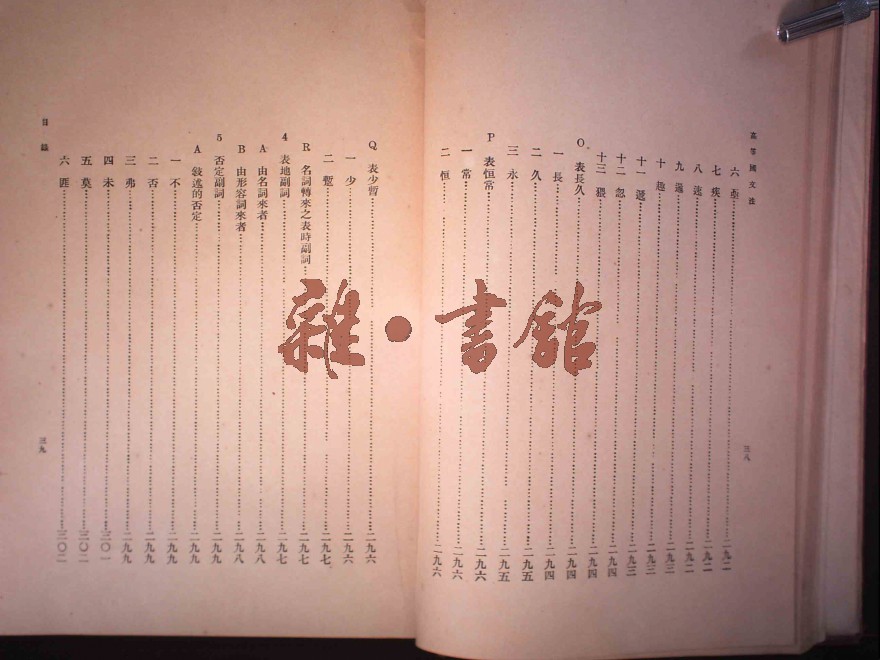 高等國文法
三八
六 亟 二九二
七 疾 二九二
八 速 二九二
九 遄 二九三
十 趣 二九三
十一 遬 二九三
十二 忽 二九四
十三 猥 二九四
O 表長久 二九四
一 長 二九四
二 久 二九五
三 永 二九五
P 表恒常 二九六
一 常 二九六
二 恒 二九六
Q 表少暫 二九六
一 少 二九六
二 蹔 二九七
R 名詞轉來之表時副詞 二九七
4 表地副詞 二九七
A 由名詞來者 二九八
B 由形容詞來者 二九八
5 否定副詞 二九九
A 敍述的否定 二九九
一 不 二九九
二 否 二九九
三 弗 二九九
四 未 三〇一
五 莫 三〇二
六 匪 三〇二
目錄
三九
雜·書館